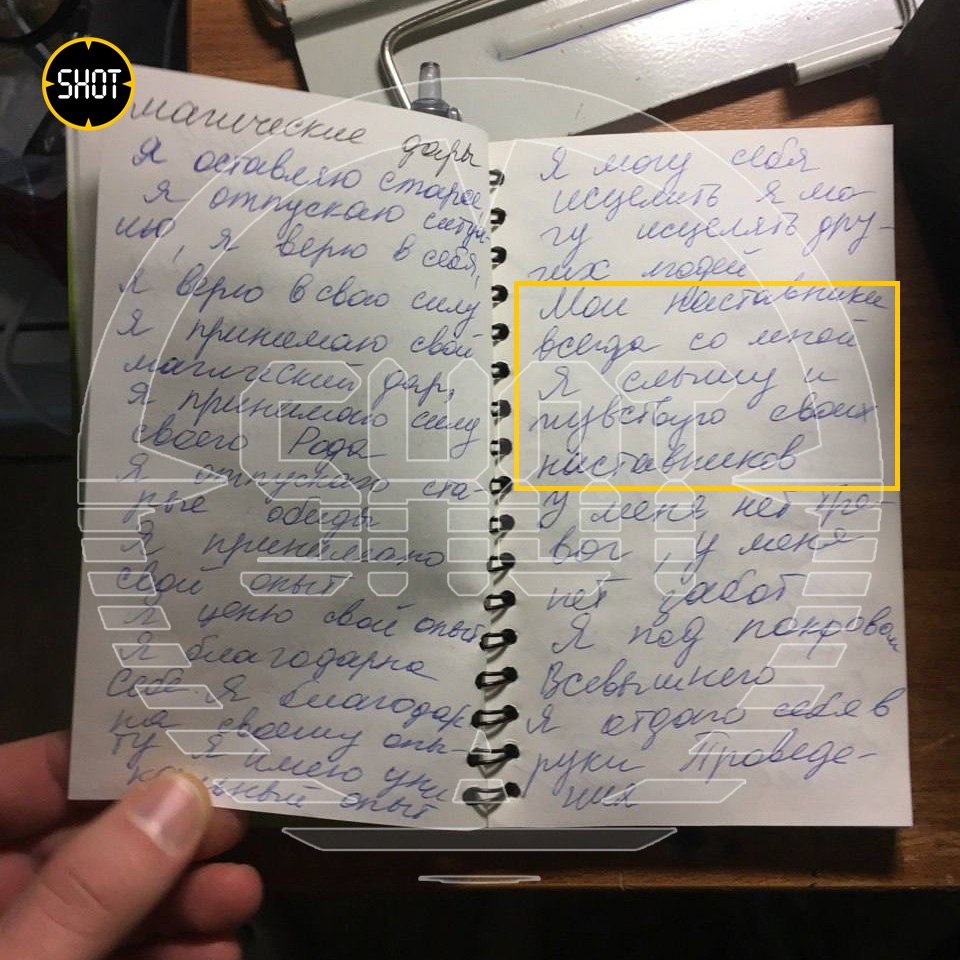 SHOT
магические дары
Я оставляю старое
Я отпускаю ситуа-
ию, я верю в себя,
Я верю в свою силу
Я принимаю свой
магический дар,
Я принимаю силу
своего Рода
Я отпускаю ста-
рые обиды
Я принимаю
свой опыт
Я ценю свой опыт
Я благодарна
себе. Я благодар
на своему опы-
ту Я имею уни
кальный опыт
Я могу себя
исцелить Я мо-
гу исцелять дру-
гих людей
Мои наставники
всегда со мной
Я слышу и
чувствую своих
наставников
У меня нет тре-
вог, у меня
нет забот
Я под покровом
Всевышнего
Я отдаю себя в
руки Провиде-
ния
SHOT